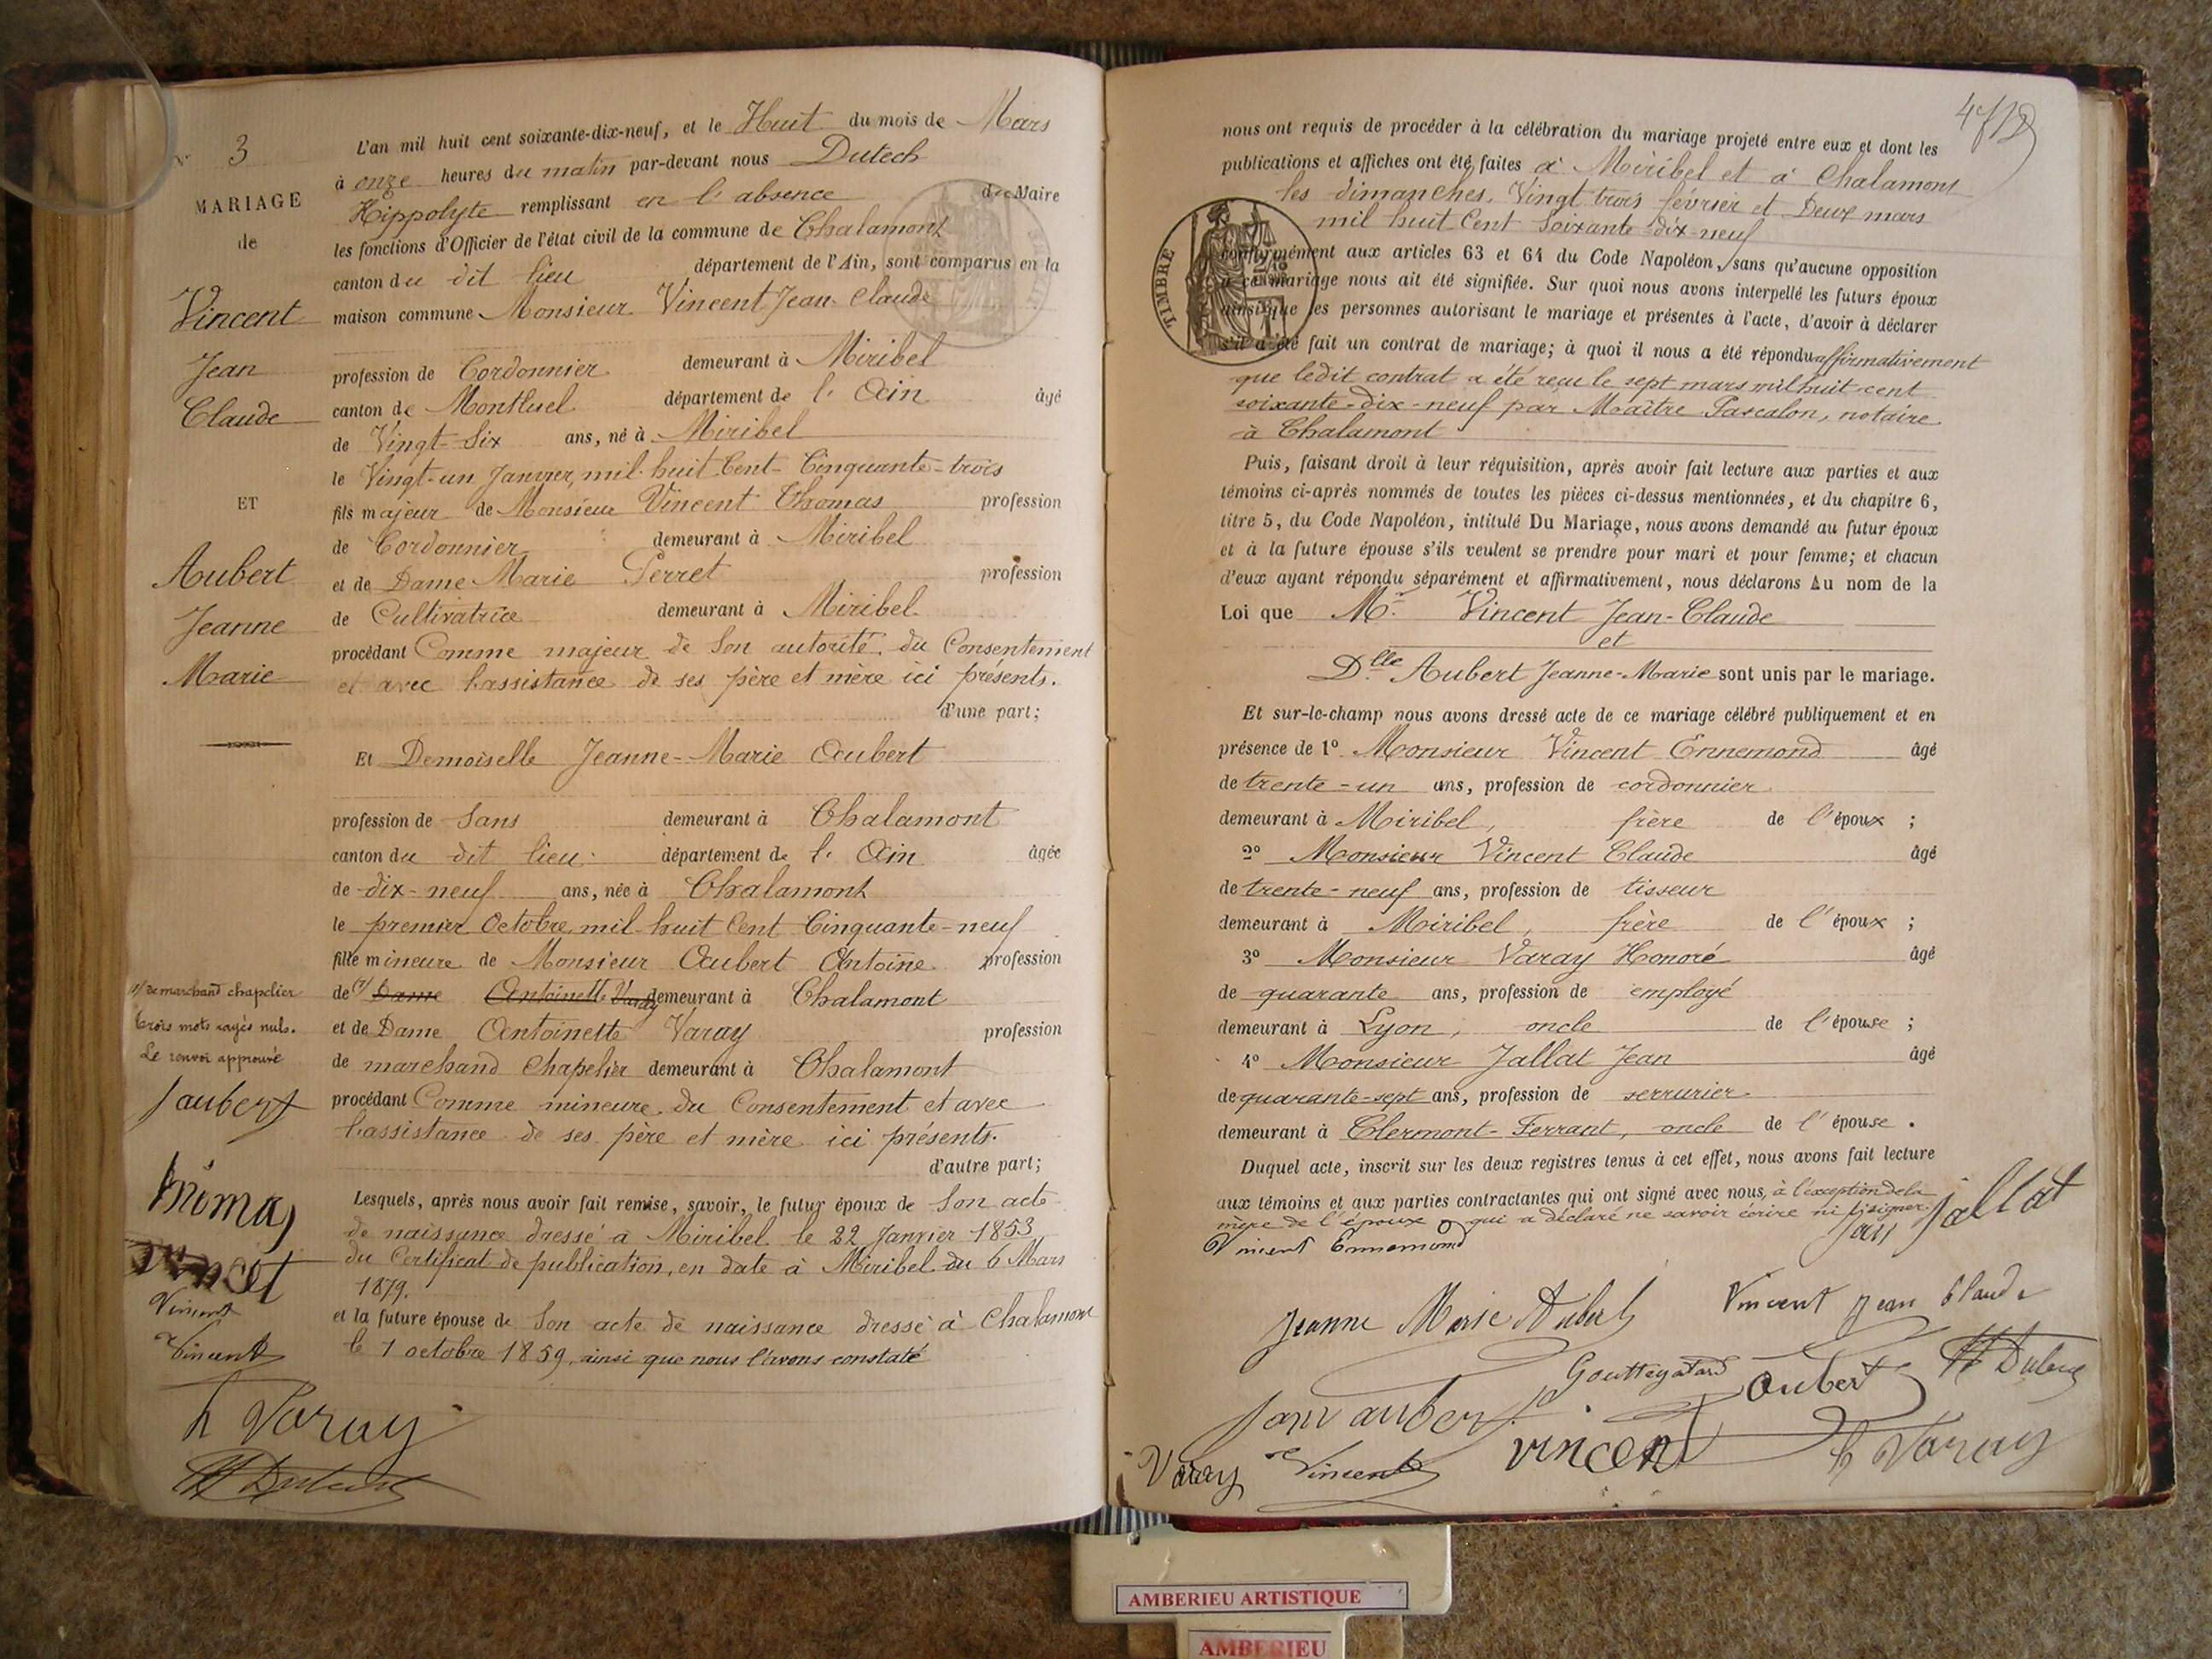 N° 3
MARIAGE
de
Vincent
Jean
Claude
ET
Aubert
Jeanne
Marie
L'an mil huit cent soixante-dix-neuf, et le Huit du mois de Mars
à onze heures du matin par-devant nous Dutech
Hippolyte remplissant en l'absence du Maire
les fonctions d'Officier de l'état civil de la commune de Chalamont
canton du dit lieu département de l'Ain, sont comparus en la
maison commune Monsieur Vincent Jean-Claude
profession de Cordonnier demeurant à Miribel
canton de Montluel département de l'Ain âgé
de Vingt-Six ans, né à Miribel
le Vingt-un Janvier, mil huit Cent-Cinquante-trois
fils majeur de Monsieur Vincent Thomas profession
de Cordonnier demeurant à Miribel
et de Dame Marie Perret profession
de Cultivatrice demeurant à Miribel
procédant Comme majeur de Son autorité, du Consentement
et avec l'assistance de ses père et mère ici présents.
d'une part;
Et Demoiselle Jeanne-Marie Aubert
profession de Sans demeurant à Chalamont
canton du dit lieu département de l'Ain âgée
de dix-neuf ans, née à Chalamont
le premier Octobre mil huit Cent Cinquante-neuf
fille mineure de Monsieur Aubert Antoine profession
de (1) Dame Antoinette Varay demeurant à Chalamont
et de Dame Antoinette Varay profession
de marchand Chapelier demeurant à Chalamont
procédant Comme mineure, du Consentement et avec
l'assistance de ses père et mère ici présents.
d'autre part;
Lesquels, après nous avoir fait remise, savoir, le futur époux de Son acte
de naissance dressé à Miribel le 22 Janvier 1853
du Certificat de publication, en date à Miribel du 6 Mars
1879.
et la future épouse de Son acte de naissance dressé à Chalamont
le 1 octobre 1859, ainsi que nous l'avons constaté
(1) de marchand chapelier
trois mots rayés nuls.
Le renvoi approuvé
J aubert
Vincent
Vincent
h Varay
nous ont requis de procéder à la célébration du mariage projeté entre eux et dont les
publications et affiches ont été faites à Miribel et à Chalamont
les dimanches, Vingt trois février et Deux mars
mil huit Cent Soixante dix-neuf
conformément aux articles 63 et 64 du Code Napoléon, sans qu'aucune opposition
à ce mariage nous ait été signifiée. Sur quoi nous avons interpellé les futurs époux
ainsi que les personnes autorisant le mariage et présentes à l'acte, d'avoir à déclarer
s'il a été fait un contrat de mariage; à quoi il nous a été répondu affirmativement
que ledit contrat a été reçu le sept mars mil huit cent
soixante-dix-neuf par Maître Pascalon, notaire
à Chalamont
Puis, faisant droit à leur réquisition, après avoir fait lecture aux parties et aux
témoins ci-après nommés de toutes les pièces ci-dessus mentionnées, et du chapitre 6,
titre 5, du Code Napoléon, intitulé Du Mariage, nous avons demandé au futur époux
et à la future épouse s'ils veulent se prendre pour mari et pour femme; et chacun
d'eux ayant répondu séparément et affirmativement, nous déclarons Au nom de la
Loi que Mr. Vincent Jean-Claude
et
Dlle Aubert Jeanne-Marie sont unis par le mariage.
Et sur-le-champ nous avons dressé acte de ce mariage célébré publiquement et en
présence de 1° Monsieur Vincent Ennemond âgé
de trente-un ans, profession de cordonnier
demeurant à Miribel, frère de l'époux ;
2° Monsieur Vincent Claude âgé
de trente-neuf ans, profession de tisseur
demeurant à Miribel, frère de l'époux ;
3° Monsieur Varay Honoré âgé
de quarante ans, profession de employé
demeurant à Lyon, oncle de l'épouse ;
4° Monsieur Jallat Jean âgé
de quarante-sept ans, profession de serrurier
demeurant à Clermont-Ferrant, oncle de l'épouse.
Duquel acte, inscrit sur les deux registres tenus à cet effet, nous avons fait lecture
aux témoins et aux parties contractantes qui ont signé avec nous, à l'exception de la
mère de l'époux qui a déclaré ne savoir écrire ni signer.
Jallat
Vincent Ennemond
Jeanne Marie Aubert
Vincent Jean Claude
Aubert
Varay
Vincent
vincent
h Varay
TIMBRE
AMBERIEU ARTISTIQUE
AMBERIEU